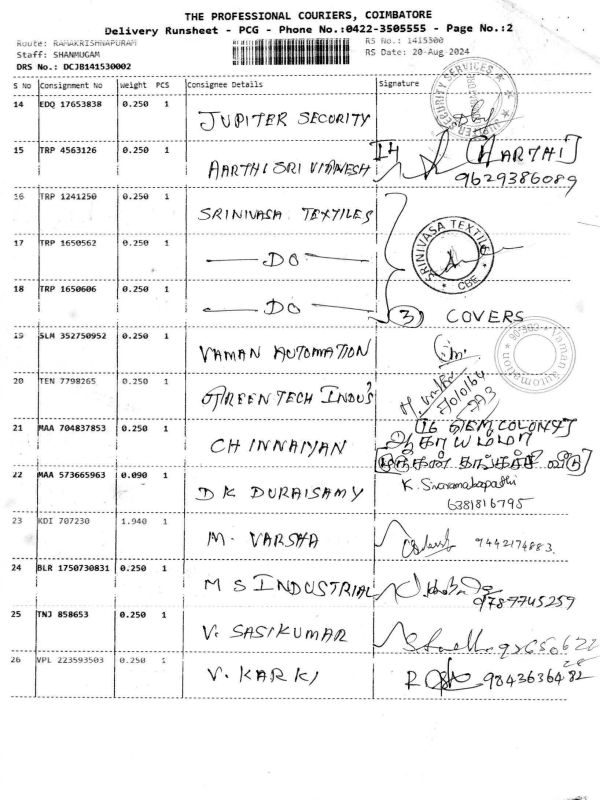 THE PROFESSIONAL COURIERS, COIMBATORE
Delivery Runsheet - PCG - Phone No.:0422-3505555 - Page No.:2
Route: RAMAKRISHNAPURAM
RS No.: 1415300
Staff: SHANMUGAM
RS Date: 20-Aug-2024
DRS No.: DCJB141530002
S No Consignment No Weight PCS Consignee Details Signature
14 EDQ 17653838 0.250 1 JUPITER SECURITY
JUPITER SECURITY SERVICES
15 TRP 4563126 0.250 1 AARTHI SRI VIGNESH [AARTHI]
9629386089
16 TRP 1241250 0.250 1 SRINIVASA TEXTILES
SRINIVASA TEXTILE
CBE
17 TRP 1650562 0.250 1 DO
18 TRP 1650606 0.250 1 DO 3 COVERS
19 SLM 352750952 0.250 1 VAMAN AUTOMATION
Vaman automation
20 TEN 7798265 0.250 1 GREEN TECH INDU'S
21 MAA 704837853 0.250 1 CHINNAIYAN
22 MAA 573665963 0.090 1 D K DURAISAMY
6381816795
23 KDI 707230 1.940 1 M. VARSHA 9442174883
24 BLR 1750730831 0.250 1 M S INDUSTRIAL
9787745259
25 TNJ 858653 0.250 1 V. SASIKUMAR
26 VPL 223593503 0.250 1 V. KARKI 9843636482